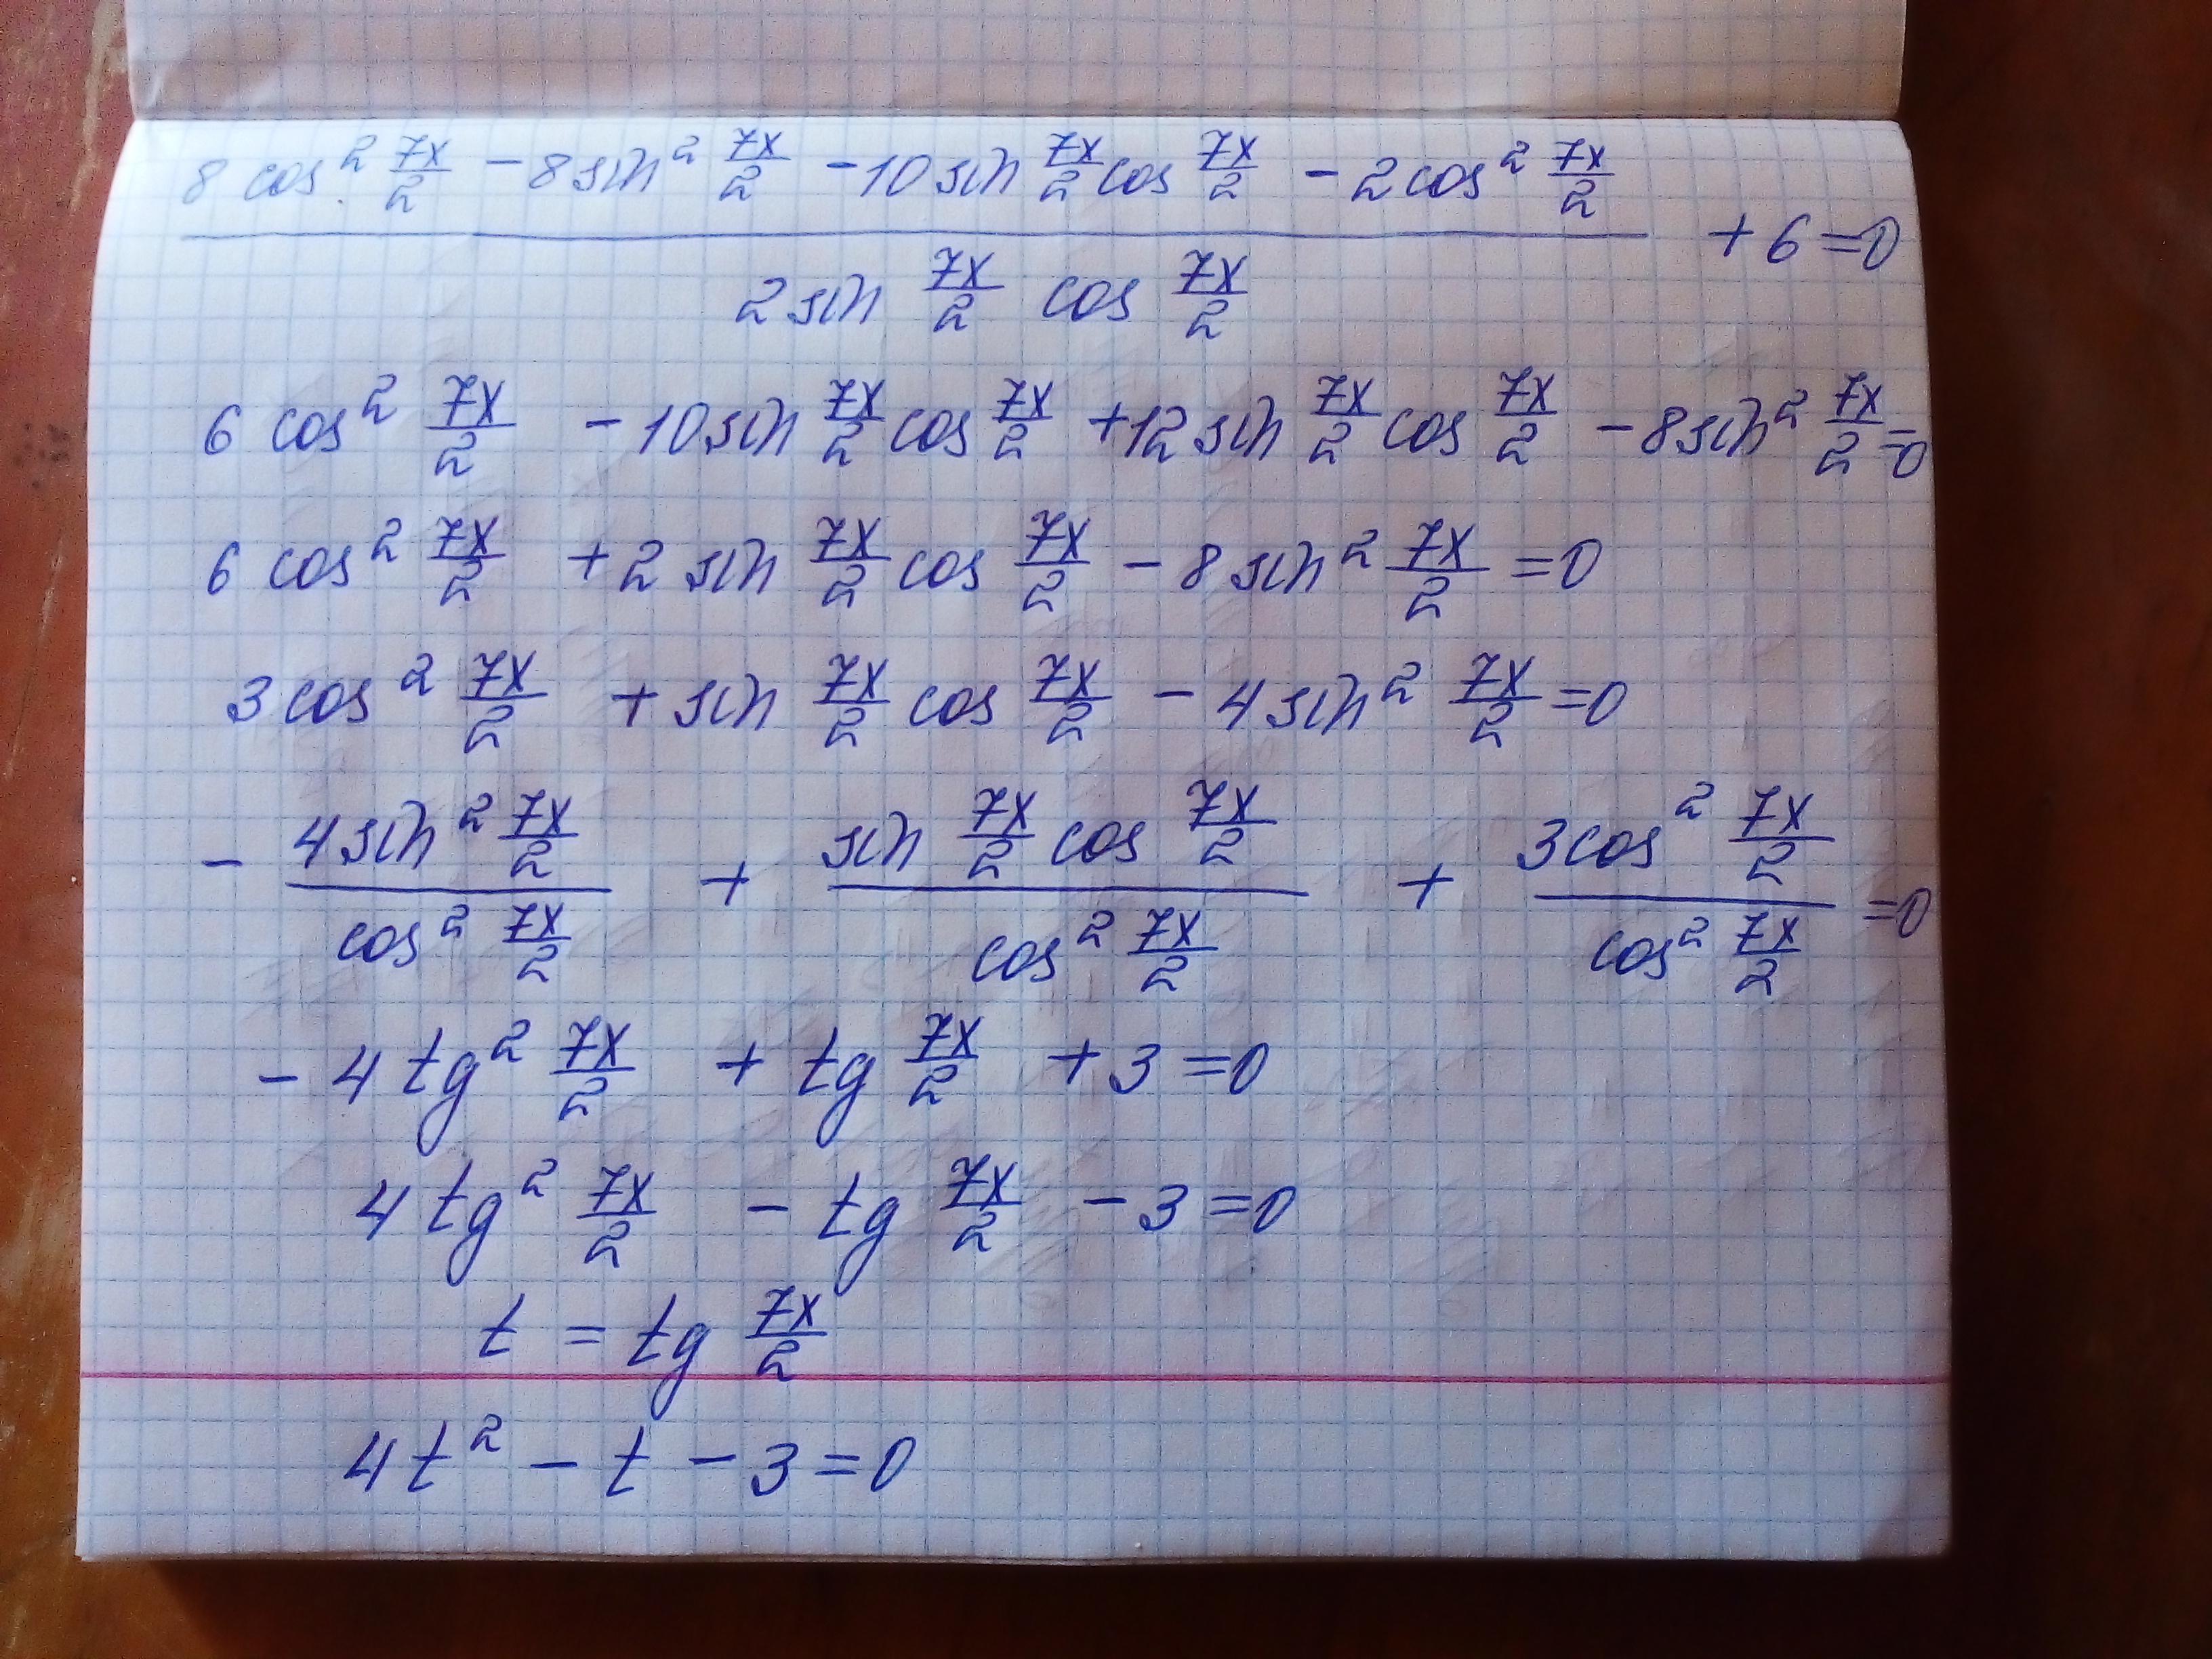 (8 cos² 7x/2 - 8 sin² 7x/2 - 10 sin 7x/2 cos 7x/2 - 2 cos² 7x/2) / (2 sin 7x/2 cos 7x/2) + 6 = 0
6 cos² 7x/2 - 10 sin 7x/2 cos 7x/2 + 12 sin 7x/2 cos 7x/2 - 8 sin² 7x/2 = 0
6 cos² 7x/2 + 2 sin 7x/2 cos 7x/2 - 8 sin² 7x/2 = 0
3 cos² 7x/2 + sin 7x/2 cos 7x/2 - 4 sin² 7x/2 = 0
- (4 sin² 7x/2) / (cos² 7x/2) + (sin 7x/2 cos 7x/2) / (cos² 7x/2) + (3 cos² 7x/2) / (cos² 7x/2) = 0
- 4 tg² 7x/2 + tg 7x/2 + 3 = 0
4 tg² 7x/2 - tg 7x/2 - 3 = 0
t = tg 7x/2
4t² - t - 3 = 0